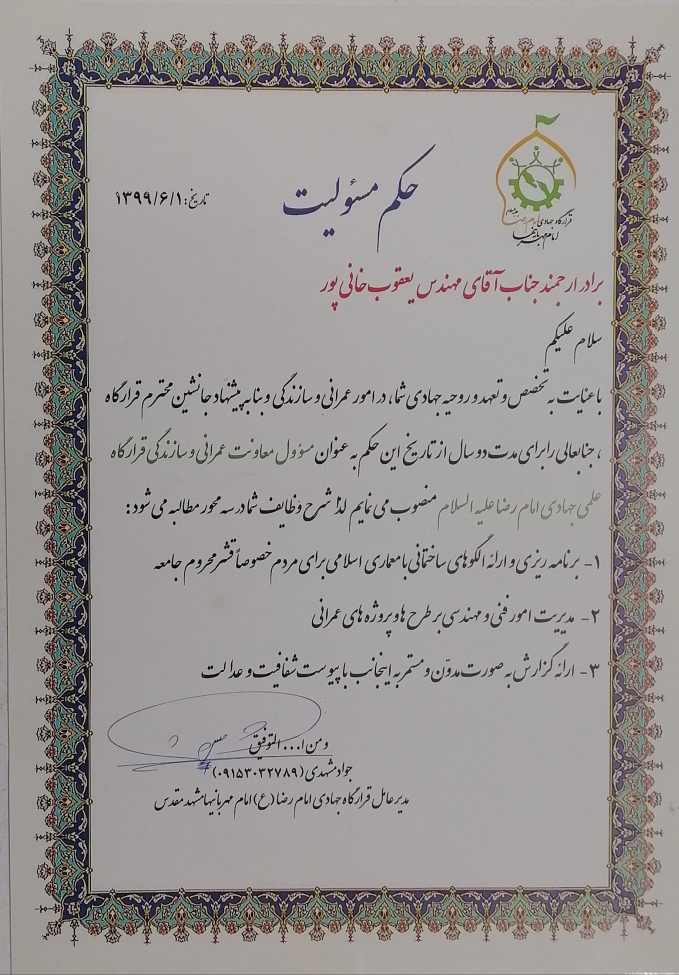 قرارگاه جهادی امام رضا
امام مهربانیها
حکم مسئولیت
تاریخ: ۱۳۹۹/۶/۱
برادر ارجمند جناب آقای مهندس یعقوب خانی پور
سلام علیکم
با عنایت به تخصص و تعهد و روحیه جهادی شما، در امور عمرانی و سازندگی و بنا به پیشنهاد جانشین محترم قرارگاه
، جنابعالی را برای مدت دو سال از تاریخ این حکم به عنوان مسؤول معاونت عمرانی و سازندگی قرارگاه
علمی جهادی امام رضا علیه السلام منصوب می نمایم لذا شرح وظایف شما در سه محور مطالبه می شود :
۱- برنامه ریزی و ارائه الگوهای ساختمانی با معماری اسلامی برای مردم خصوصاً قشر محروم جامعه
۲- مدیریت امور فنی و مهندسی بر طرح ها و پروژه های عمرانی
۳- ارائه گزارش به صورت مدوّن و مستمر به اینجانب با پیوست شفافیت و عدالت
و من ا... التوفیق
جواد مشهدی (۰۹۱۵۳۰۳۲۷۸۹)
مدیر عامل قرارگاه جهادی امام رضا (ع) امام مهربانیها مشهد مقدس